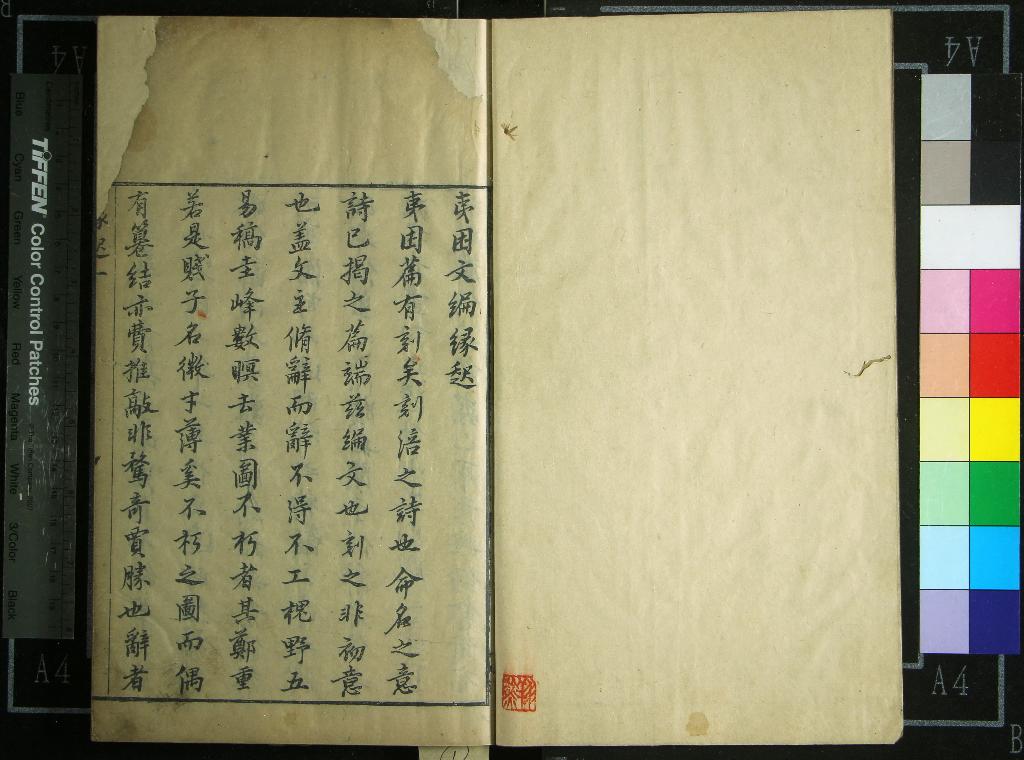 夷困文編緣起
夷困篇有刻矣刻涪之詩也命名之意
詩已揭之篇端茲編文也刻之非初意
也盖文主脩辭而辭不淂不工槐野五
易稿圭峰數暝去業圖不朽者其鄭重
若是賤子名微才薄奚不朽之圖而偶
有篹結亦費推敲非騖奇賈勝也辭者
TIFFEN Color Control Patches
Blue
Cyan
Green
Yellow
Red
Magenta
White
3/Color
Black
A4
A4
A4
A4
B